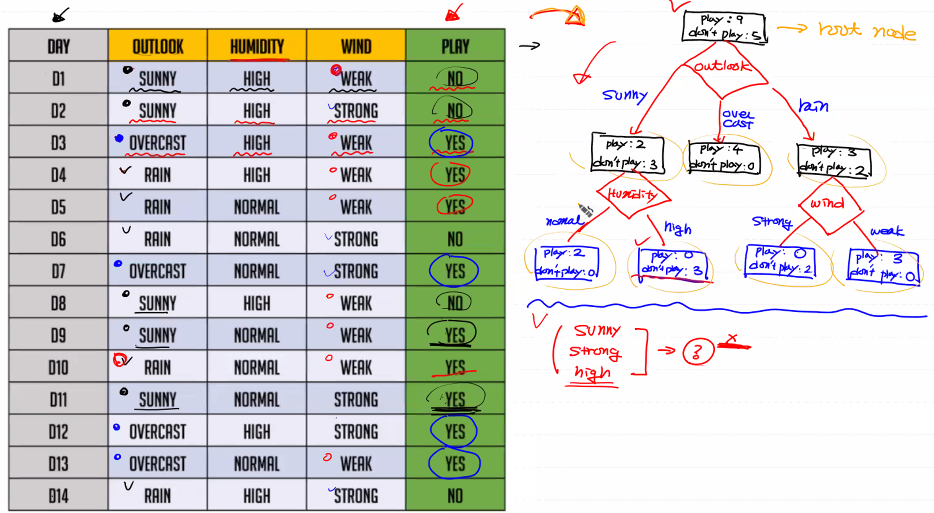 DAY OUTLOOK HUMIDITY WIND PLAY
D1 SUNNY HIGH WEAK NO
D2 SUNNY HIGH STRONG NO
D3 OVERCAST HIGH WEAK YES
D4 RAIN HIGH WEAK YES
D5 RAIN NORMAL WEAK YES
D6 RAIN NORMAL STRONG NO
D7 OVERCAST NORMAL STRONG YES
D8 SUNNY HIGH WEAK NO
D9 SUNNY NORMAL WEAK YES
D10 RAIN NORMAL WEAK YES
D11 SUNNY NORMAL STRONG YES
D12 OVERCAST HIGH STRONG YES
D13 OVERCAST NORMAL WEAK YES
D14 RAIN HIGH STRONG NO
play: 9
don't play: 5
root node
outlook
sunny
over
cast
rain
play: 2
don't play: 3
play: 4
don't play: 0
play: 3
don't play: 2
Humidity
wind
nomal
high
strong
weak
play: 2
don't play: 0
play: 0
don't play: 3
play: 0
don't play: 2
play: 3
don't play: 0
sunny
strong
high
? x